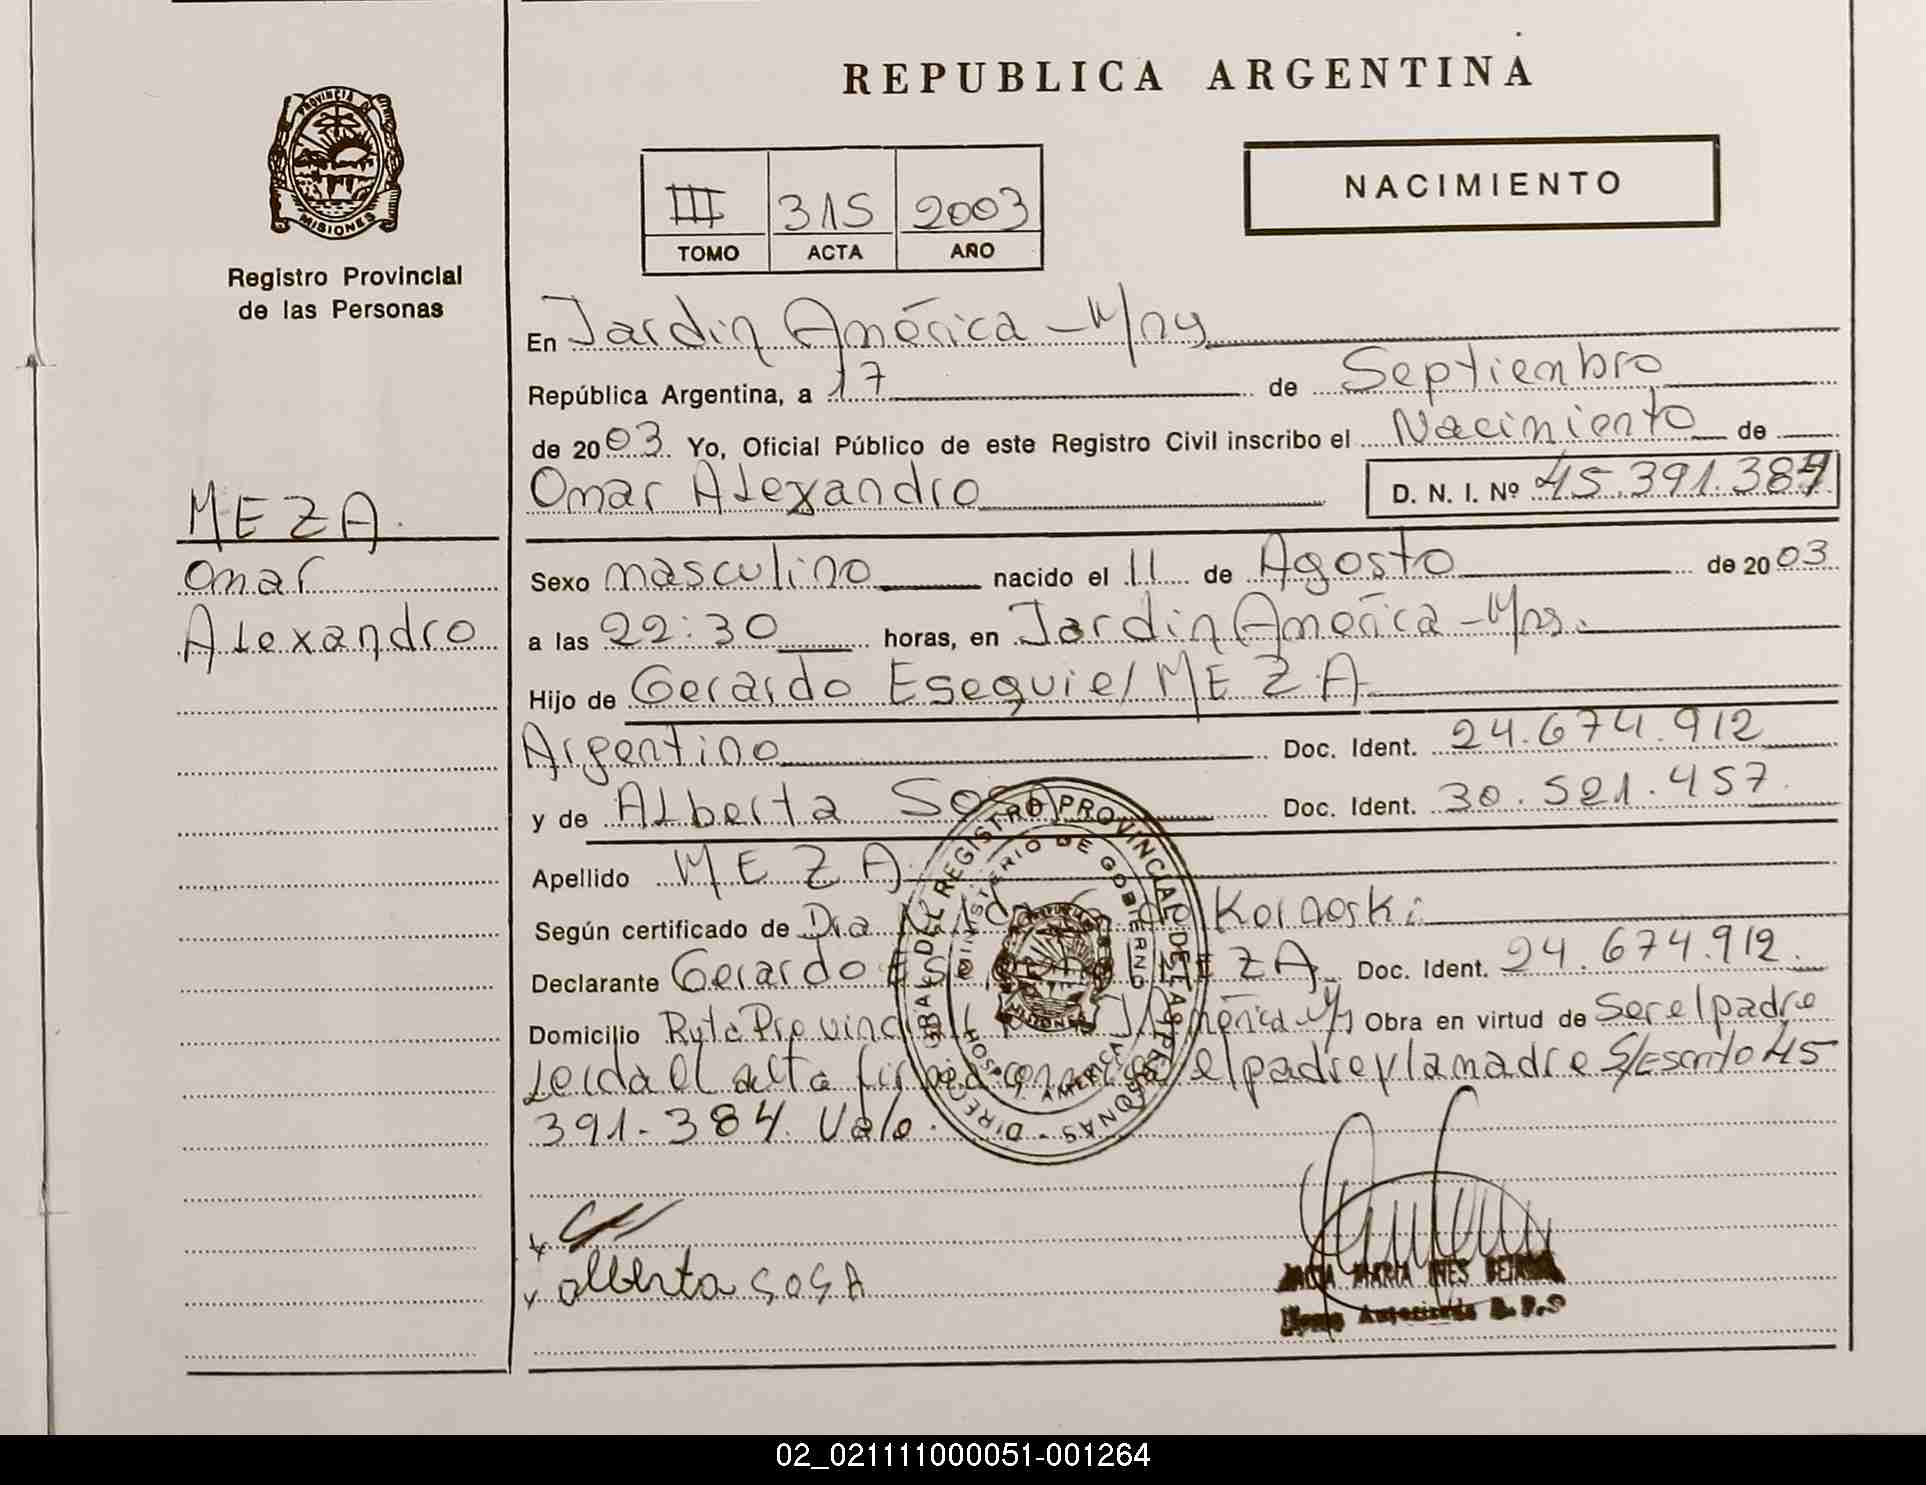 REPUBLICA ARGENTINA
PROVINCIA DE
MISIONES
Registro Provincial
de las Personas
NACIMIENTO
III 315 2003
TOMO ACTA AÑO
En Jardin América - Mns
República Argentina, a 17 de Septiembre
de 2003 Yo, Oficial Público de este Registro Civil inscribo el Nacimiento de
Omar Alexandro D. N. I. Nº 45.391.384
MEZA
Omar
Alexandro
Sexo masculino nacido el 11 de Agosto de 2003
a las 22:30 horas, en Jardin América - Mns.
Hijo de Gerardo Esequiel MEZA
Argentino Doc. Ident. 24.674.912
y de Alberta Sosa Doc. Ident. 30.521.457
Apellido MEZA
Según certificado de Dra Kornoski
Declarante Gerardo MEZA Doc. Ident. 24.674.912
Domicilio Ruta Provincial América Mns Obra en virtud de Ser el padre
Leida el acta el padre y la madre S/Escrito 45
391.384 Vale.
DIRECC. GRAL. DEL REGISTRO PROVINCIAL DE LAS PERSONAS
MINISTERIO DE GOBIERNO
HOSP. J. AMERICA
MISIONES
alberta SOSA
MARIA INES
Autorizada R. P. S
02_021111000051-001264